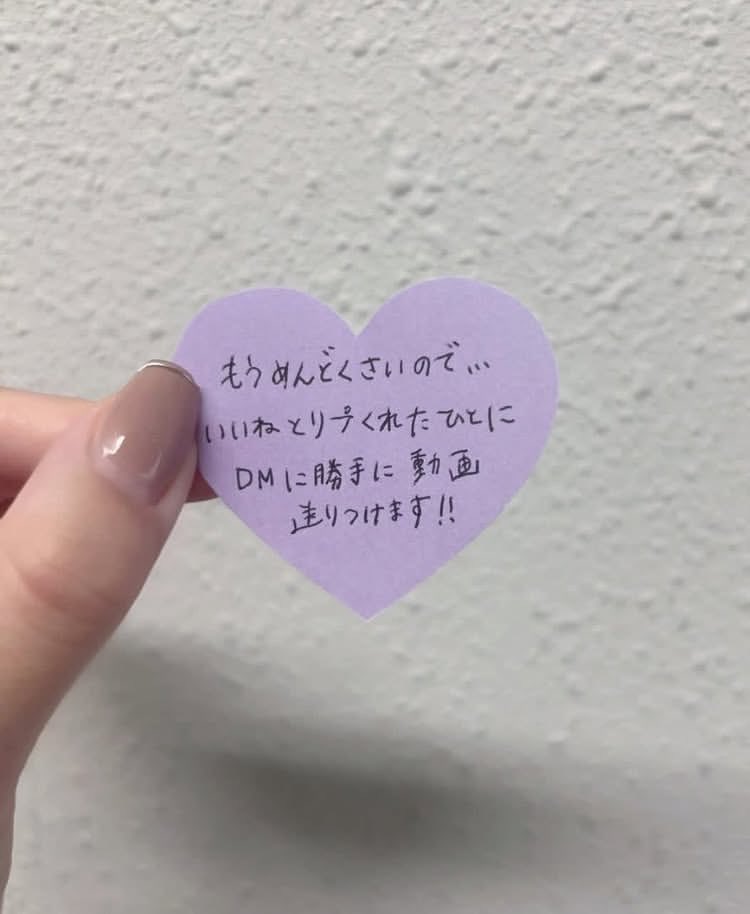 もうめんどくさいので...
いいねとリプくれたひとに
DMに勝手に動画
送りつけます!!